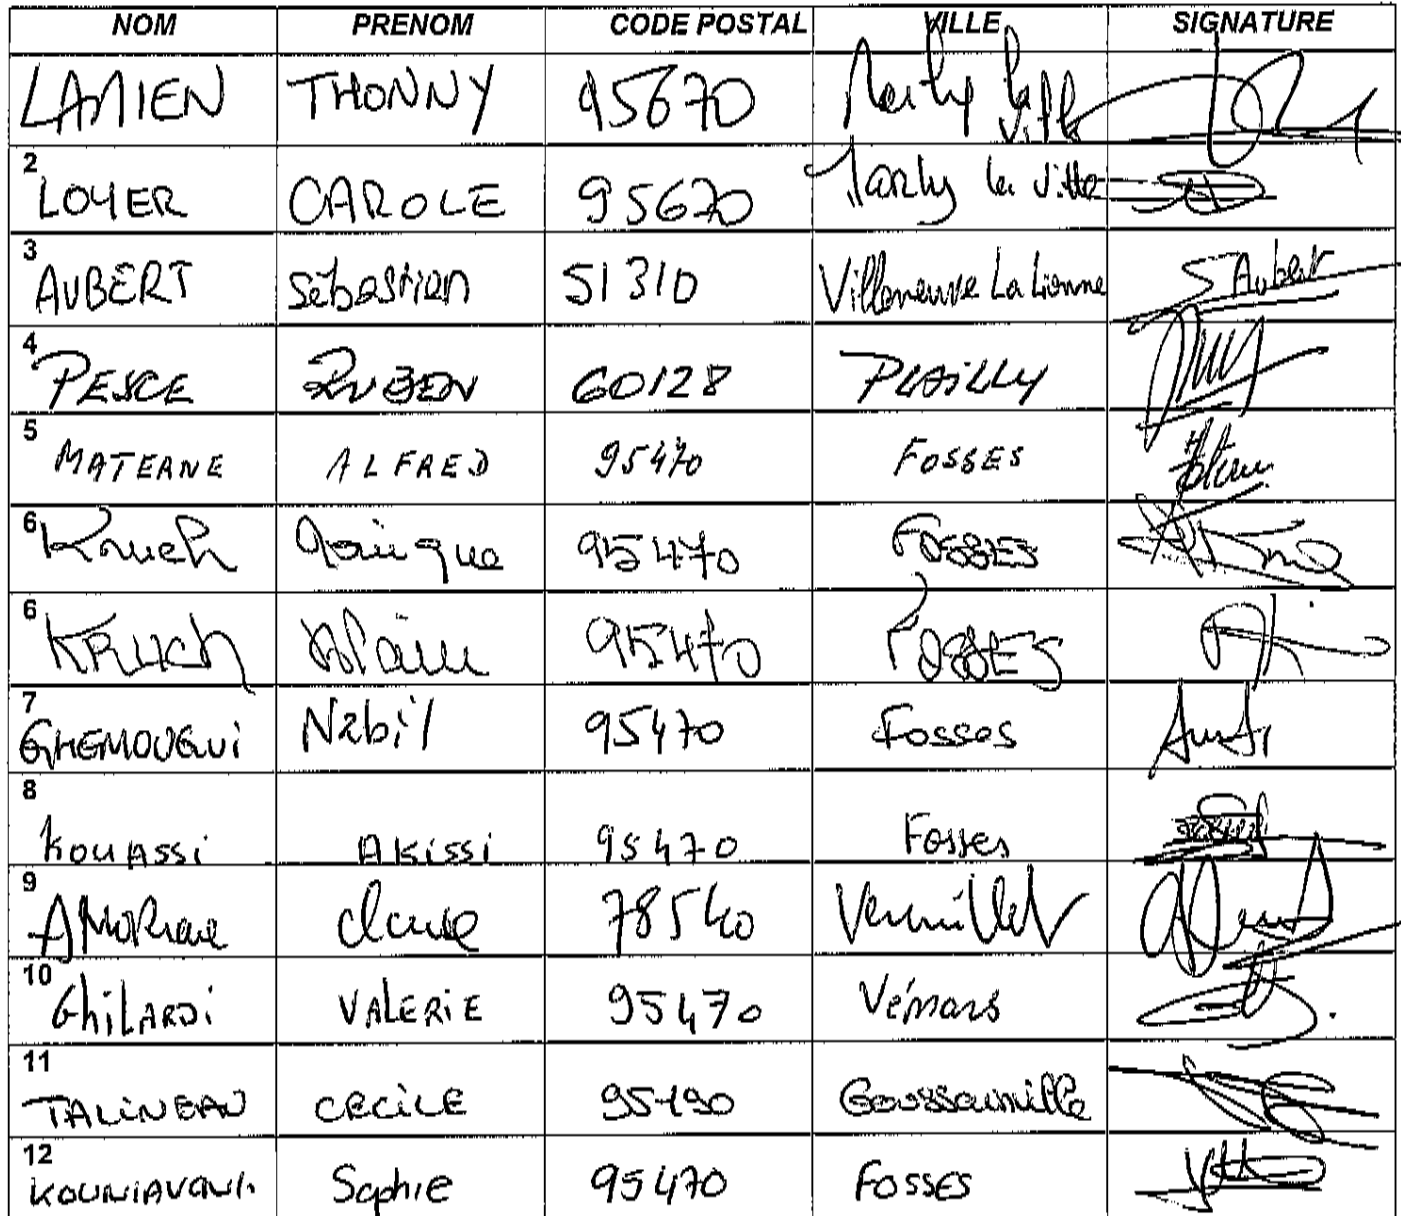 NOM PRENOM CODE POSTAL VILLE SIGNATURE
LAMIEN THONNY 95670 Marly la Ville
2 LOYER CAROLE 95670 Marly la Ville
3 AUBERT Sébastien 51310 Villeneuve La Lionne S Aubert
4 PESCE RUBEN 60128 PLAILLY
5 MATERNE ALFRED 95470 FOSSES
6 Kruch 95470 FOSSES
6 KRUCH Alain 95470 FOSSES
7 GHEMOUGUi Nabil 95470 Fosses
8 KOUASSi AKiSSi 95470 Fosses
9 78540 Vernouillet
10 GhiLARDi VALERIE 95470 Vémars
11 TALINEAU CECILE 95190 Goussainville
12 Sophie 95470 FOSSES